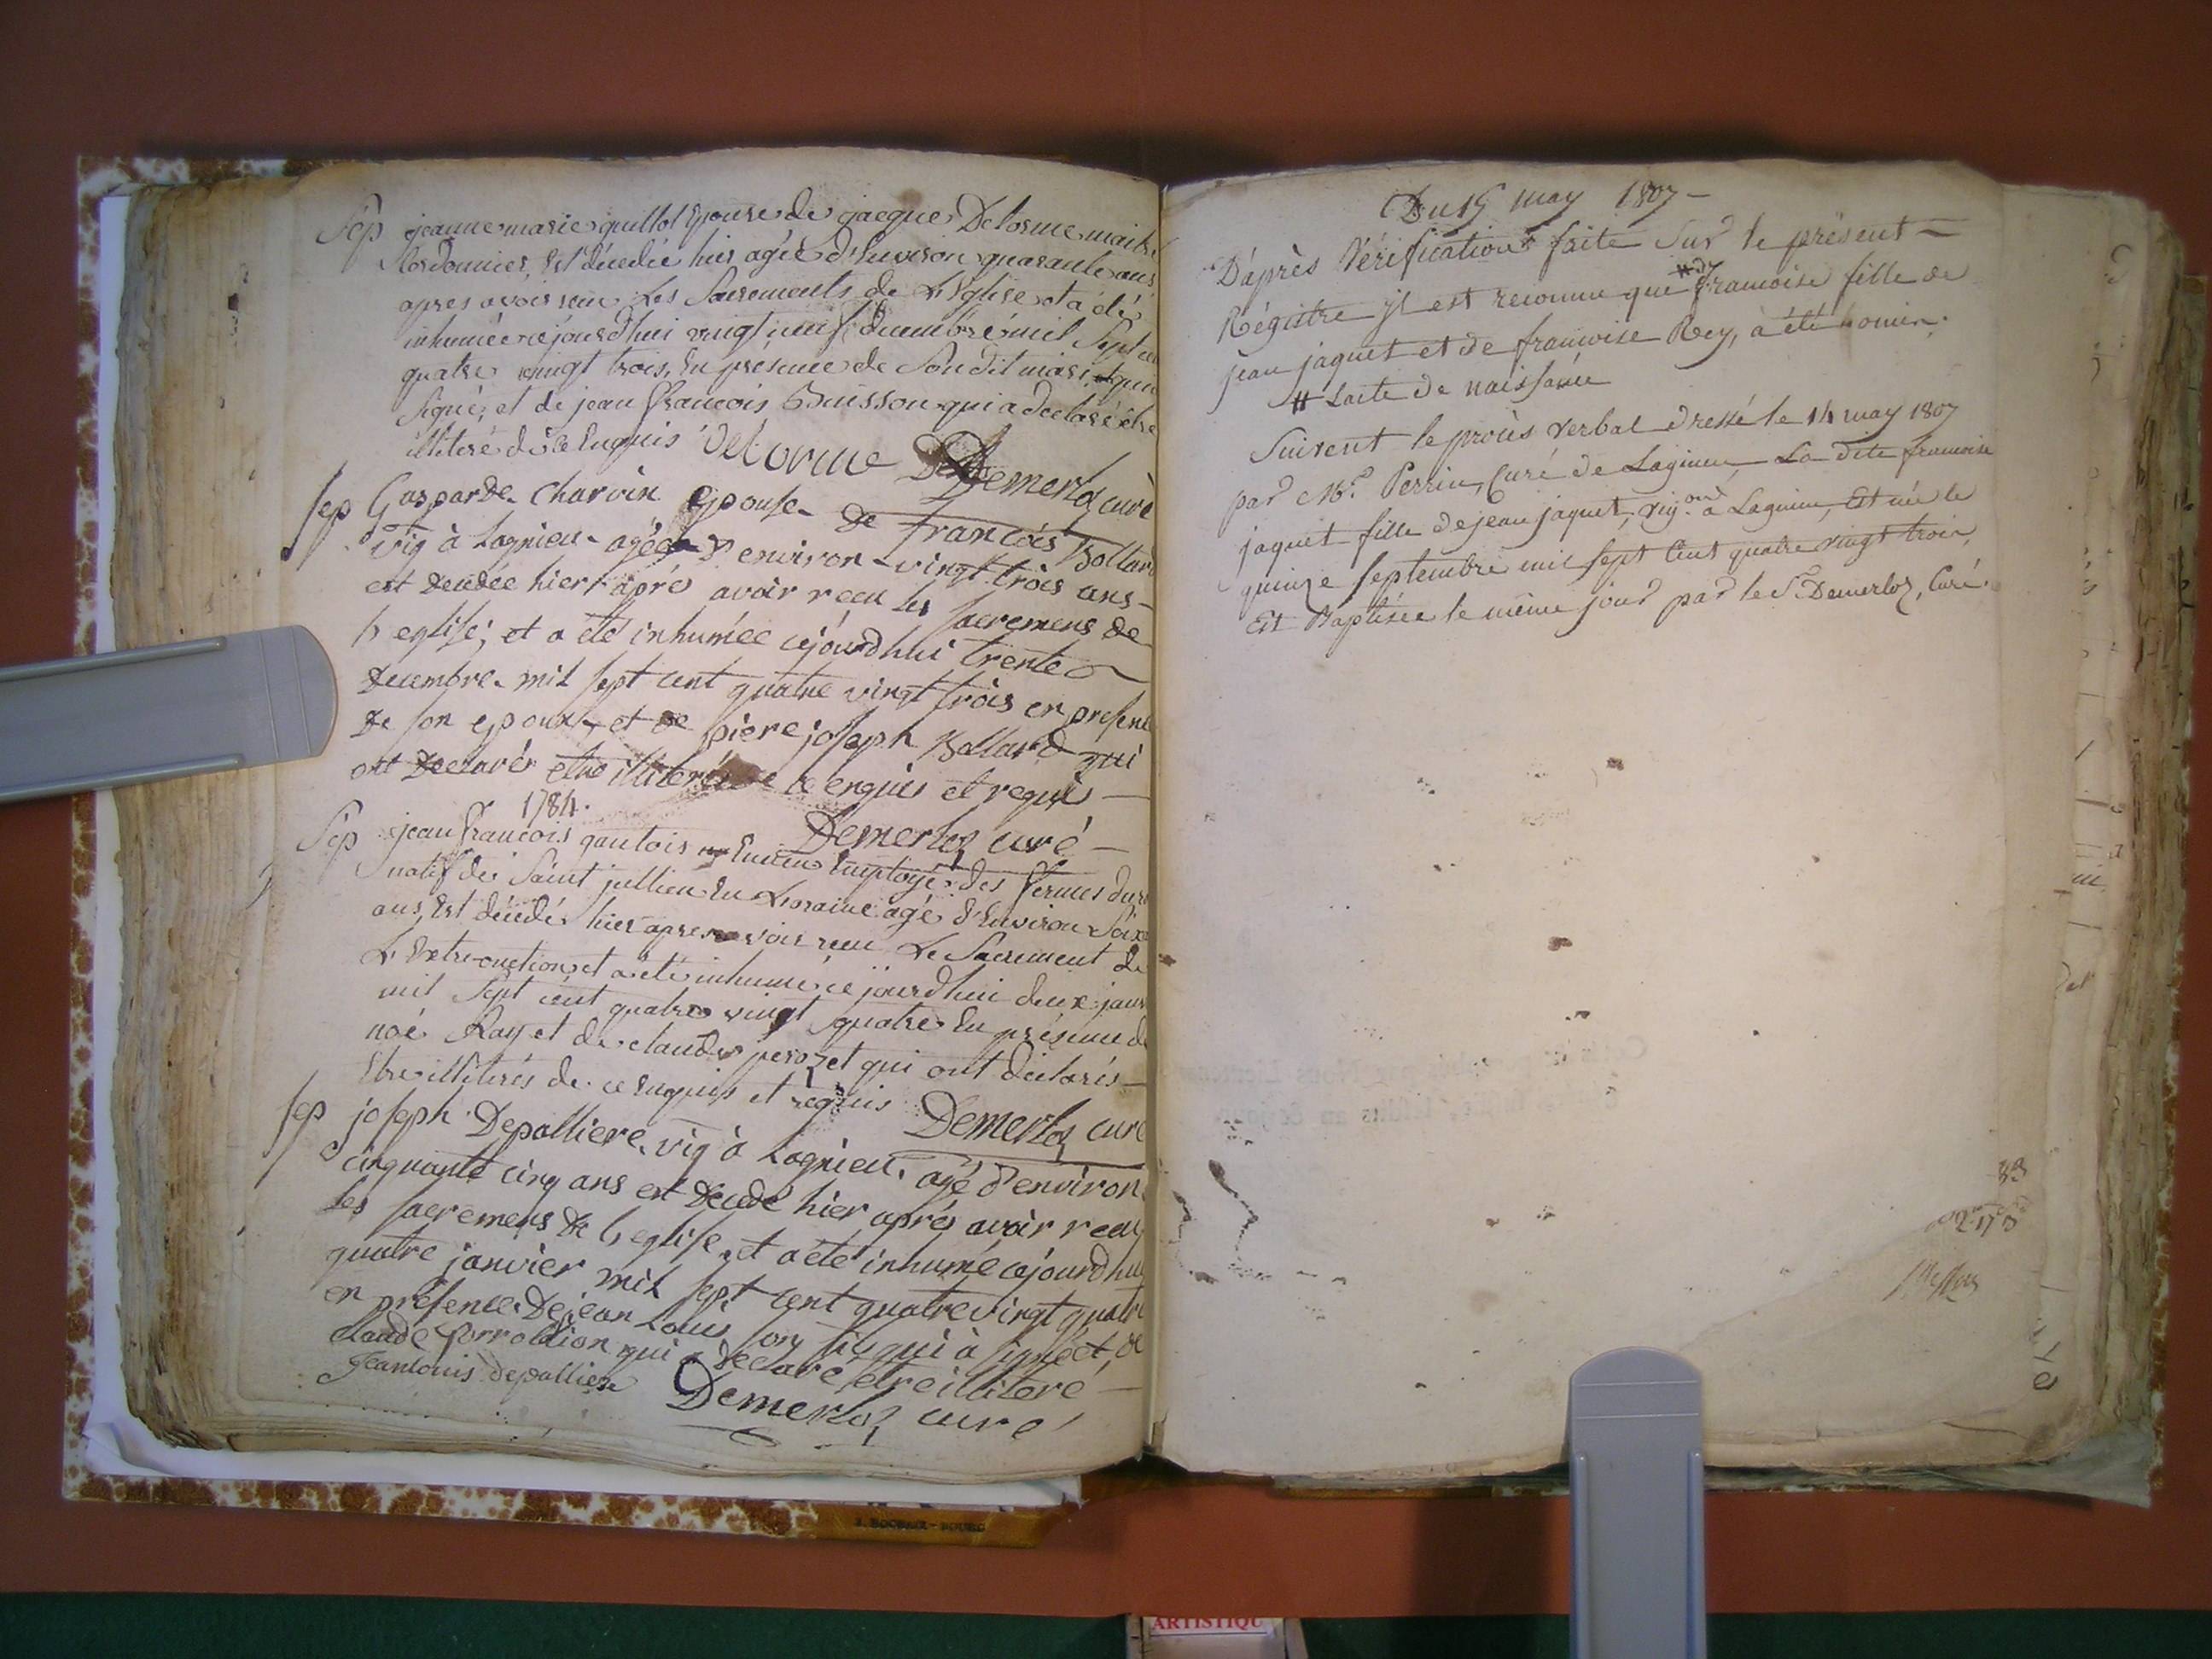 Sep jeanne marie guillot Epouse de jacque Delorme maitre
Cordonnier, Est décédée hier agée d'Environ quarante ans
apres avoir reçu Les Sacrements de L'Eglise et a été
inhumée ce jourd'hui vingt neuf decembre mil Sept cen
quatre vingt trois, En presence de Son dit mari qui a
Signé, et de jean François Buisson qui a declaré etre
illiteré de ce Enquis Delorme Demerloz curé
Sep Gasparde Charvin epouse de francois Ballard
vig à Lagnieu agée d'environ vingt trois ans
est decedée hier aprés avoir recu les sacremens de
l'eglise; et a été inhumée cejourdhui trente
Decembre mil sept cent quatre vingt trois en presence
de son epoux et de piere joseph Ballard qui
ont declarés etre illiterés de ce enquis et requis
Demerloz curé
1784.
Sep jean François gautois ancien Employé des fermes du r
natif de Saint jullien En Loraine agé d'Environ Soix
ans, Est décédé hier apres avoir reçu Le Sacrement de
L'Extre-onction et a été inhumé ce jourd'hui deux janv
mil Sept cent quatre vingt quatre En présence de
noé Ray et de claude perozet qui ont déclarés
Etre illiterés de ce Enquis et requis Demerloz curé
Sep joseph Depalliere vig à Lagnieu agé d'environ
cinquante cinq ans est decedé hier aprés avoir recu
les sacremens de l'eglise et a été inhumé cejourdhui
quatre janvier mil sept cent quatre vingt quatre
en presence de jean Louis son fils qui à signé et de
claude qui a declaré etre illiteré
Jean louis depalliere Demerloz curé
Du 15 may 1807
D'après Vérification faite Sur le présent
Régistre il est reconnu que # françoise fille de
jean jaquet et de françoise Rey, a été omis.
# Lacte de naissance
Suivent le procès verbal dressé le 14 may 1807
par Mr. Perrin, Curé de Lagnieu La dite françoise
jaquet fille de jean jaquet, vig.on à Lagnieu, Est née le
quinze septembre mil sept cent quatre vingt trois,
Et Baptisée le même jour par le Sr Demerloz, Curé.
83
J. BOCHAIX - BOURG
ARTISTIQU